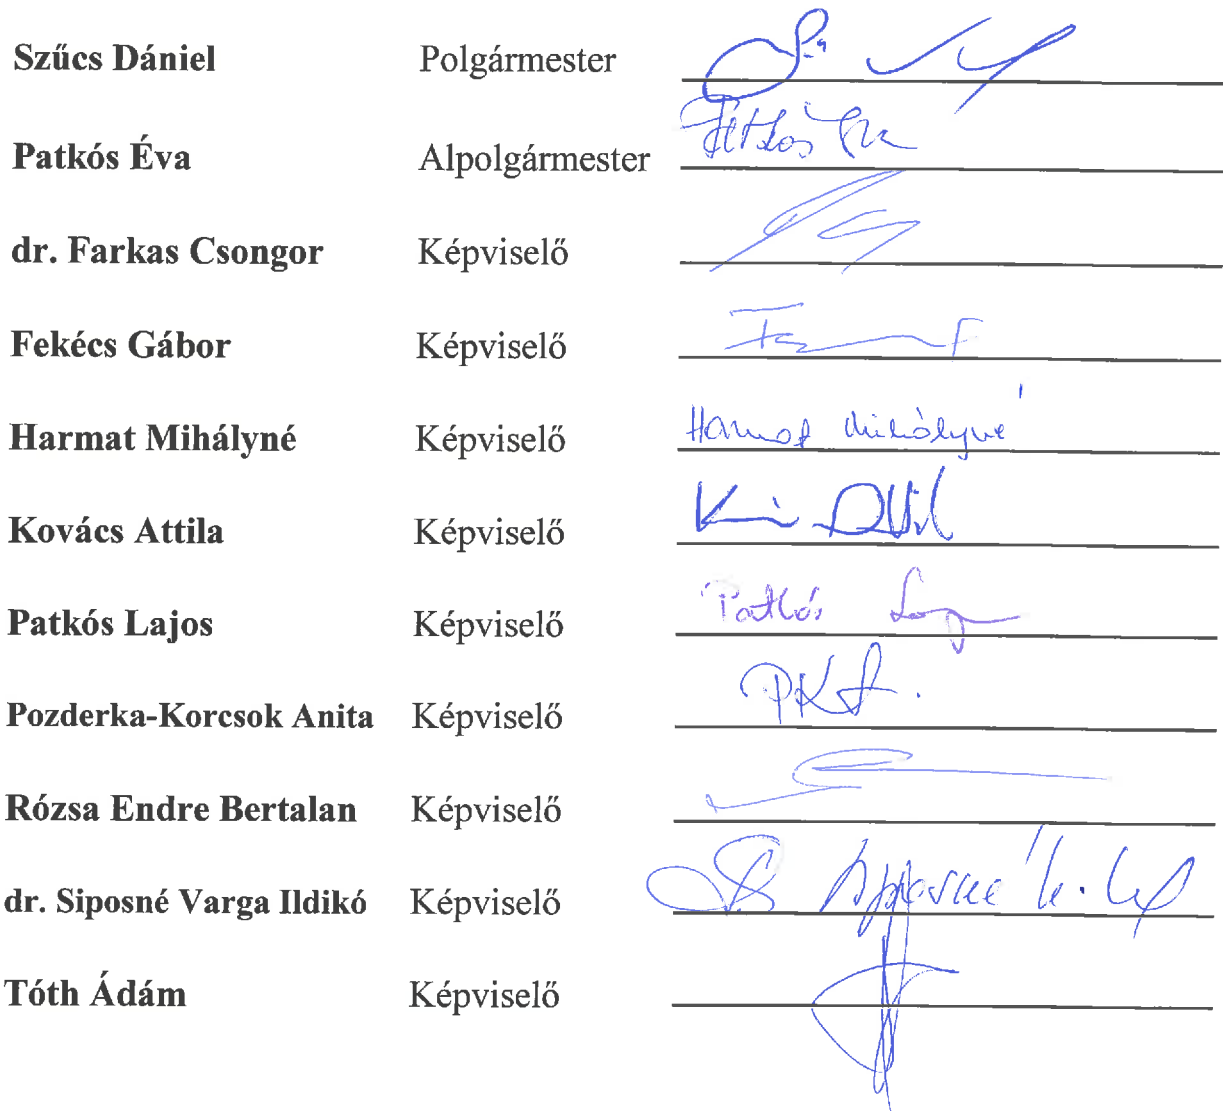 Szűcs Dániel Polgármester
Patkós Éva Alpolgármester Patkós
dr. Farkas Csongor Képviselő
Fekécs Gábor Képviselő
Harmat Mihályné Képviselő Harmat Mihályné
Kovács Attila Képviselő
Patkós Lajos Képviselő Patkós
Pozderka-Korcsok Anita Képviselő PKA.
Rózsa Endre Bertalan Képviselő
dr. Siposné Varga Ildikó Képviselő Siposné
Tóth Ádám Képviselő